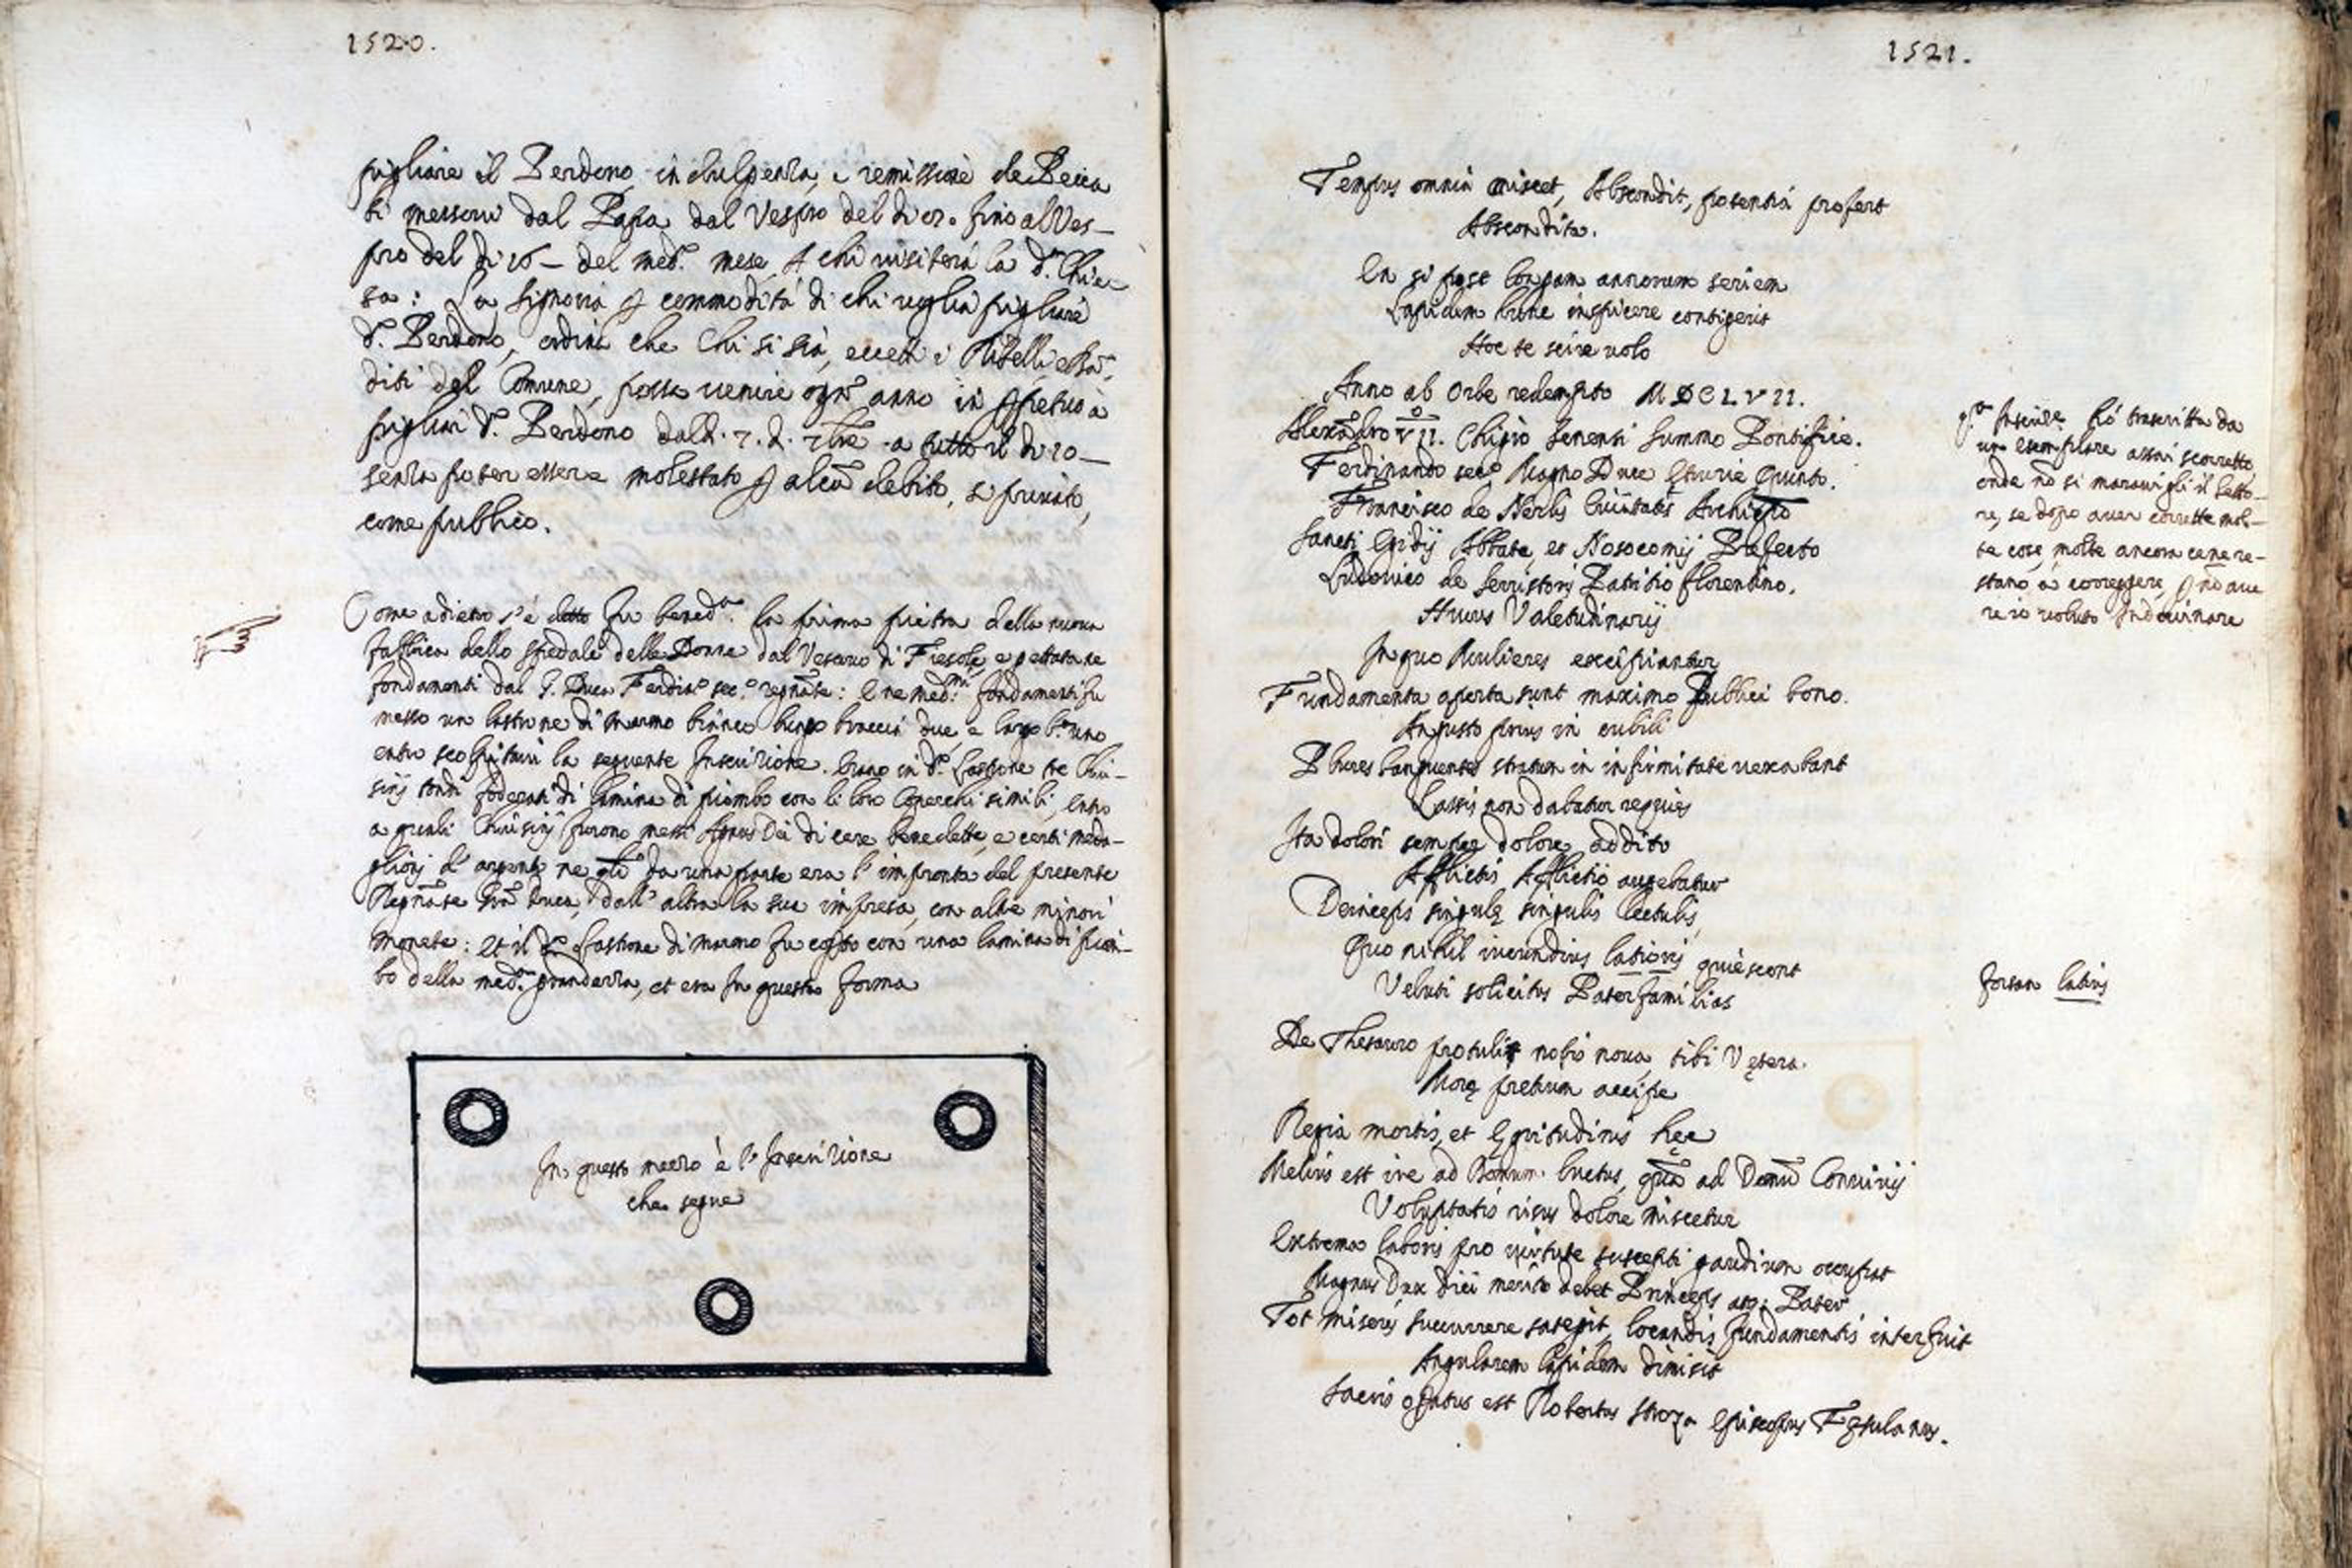 1520.
pigliare il Perdono indulgenza, e remissione de Pecca
ti messovi dal Papa dal Vespro del di 7. fino al Ves-
pro del di 10 - del med.º mese, p chi visiterà la d.ª Chie-
sa: La Signoria p commodità di chi voglia pigliare
d.º Perdono, ordinò che Chi si sia, eccetti i Ribelli, e Ba-
diti del Comune, possa venire ogn' anno in ppetuo à
pigliar d.º Perdono dal di. 7. d. 7bre a tutto il di 10 -
senza poter essere molestato p alcū debito, sì privato,
come publico.
Come adietro s'è detto fu bened.ª la prima pietra della nuova
fabbrica dello spedale delle Donne dal Vescovo di Fiesole, e gettata ne
fondamenti dal G. Duca Ferdin.º sec.º regnāte: E ne med.mi fondamenti fu
messo un lastrone di marmo bianco lungo braccia due, e largo b.º uno
entro scolpitavi la seguente Inscrizione. Erano in d.º Lastrone tre Chiu-
sinj tondi foderati di lamina di piombo con li loro Coperchi simili, entro
a quali Chiusinj furono messi Agnus Dei di cere benedette, e certi meda-
glionj d' argento ne qli da una parte era l' impronta del presente
Regnāte Grā Duca, dall' altra la sua impresa, con altre minori
monete: et il d.º Lastrone di marmo fu copto con una lamina di piom-
bo della med.ª grandezza, et era In questa forma
In questo mezzo è l' Inscrizione
che segue
1521.
Tempus omnia miscet, Abscondit, potentia profert
Abscondita.
En si post longam annorum seriem
Lapidem hunc inspicere contigerit
Hoc te scire volo
Anno ab Orbe redempto MDCLVII.
Alexādro VII.º Chigio Senensi Summo Pontifice.
Ferdinando sec.º Magno Duce Etrurie Quinto.
Francisco de Nerlis Civitatis Archiepto
Sancti Egidij Abbate, et Nosocomij Prefecto
Ludovico de Serristoris Patritio florentino.
Huius Valetudinarij
In quo Mulieres excipiantur
Fundamenta aperta sunt maximo Publici bono.
Angusto prius in cubili
Plures languentes stratum in infirmitate vexabant
Lassis non dabatur requies
Ita dolori semper dolore addito
Afflictis Afflictio augebatur
Deinceps singulę singulis lectulis,
Quo nihil iucundius latioris quiescent
Veluti solicitus Paterfamilias
De Thesauro protulit nobis nova, sibi Vetera.
Morę pretium accipe
Regia mortis, et Egritudinis hęc
Melius est ire ad Domum luctus, quā ad Domū Convivij
Voluptatis risus dolore miscetur
Extrema laboris pro virtute suscepti gaudium occupat
Magnus Dux dici merito debet Princeps atq; Pater
Tot miseris succurrere sategit, locandis fundamentis interfuit
Angularem lapidem dimisit
Sacris opatus est Robertus Stroza Episcopus Fęsulanus.
q.ª Inscrizē. fù trascritta da
un esemplare assai scorretto
onde nō si maravigli il letto-
re, se dopo aver corrette mol-
te cose, molte ancora cene re-
stano à correggere, p nō ave
re io voluto Indovinare
forsan latius